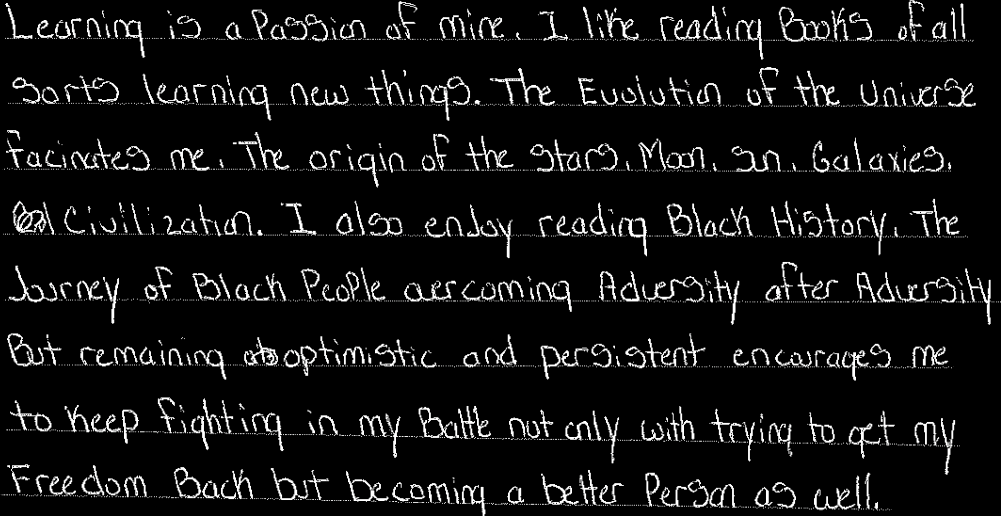 Learning is a Passion of mine. I like reading Books of all
sorts learning new things. The Evolution of the Universe
facinates me. The origin of the stars, Moon, sun, Galaxies,
Civilization. I also enJoy reading Black History. The
Journey of Black People overcoming Adversity after Adversity
But remaining optimistic and persistent encourages me
to Keep fighting in my Battle not only with trying to get my
Freedom Back but becoming a better Person as well.